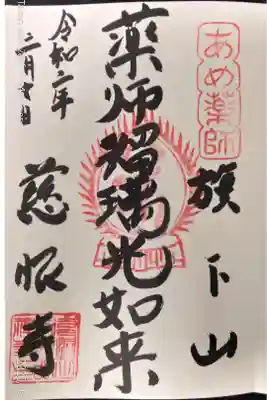 あめ薬師
旗下山
薬師瑠璃光如来
慈眼寺
令和二年
二月十日